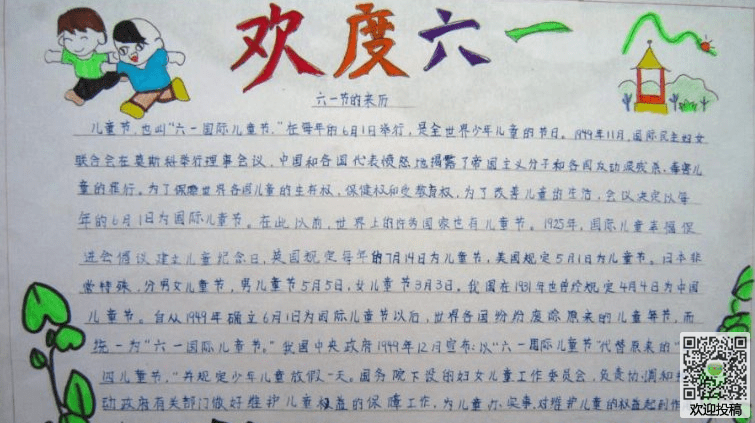 欢度六一
六一节的来历
儿童节,也叫“六一国际儿童节,”在每年的6月1日举行,是全世界少年儿童的节日。1949年11月,国际民主妇女
联合会在莫斯科举行理事会议,中国和各国代表愤怒地揭露了帝国主义分子和各国反动派残杀、毒害儿
童的罪行。为了保障世界各国儿童的生存权、保健权和受教育权,为了改善儿童的生活,会议决定以每
年的6月1日为国际儿童节。在此以前,世界上的许多国家也有儿童节。1925年,国际儿童幸福促
进会倡议建立儿童纪念日,英国规定每年的7月14日为儿童节,美国规定5月1日为儿童节。日本非
常特殊,分男女儿童节,男儿童节5月5日,女儿童节3月3日。我国在1931年也曾经规定4月4日为中国
儿童节。自从1949年确立6月1日为国际儿童节以后,世界各国纷纷废除原来的儿童节,而
统一为“六一国际儿童节。”我国中央政府1949年12月宣布:以“六一国际儿童节”代替原来的“
四儿童节,”并规定少年儿童放假一天。国务院下设的妇女儿童工作委员会,负责协调和
动政府有关部门做好维护儿童权益的保障工作,为儿童办实事,对维护儿童的权益起到
欢迎投稿